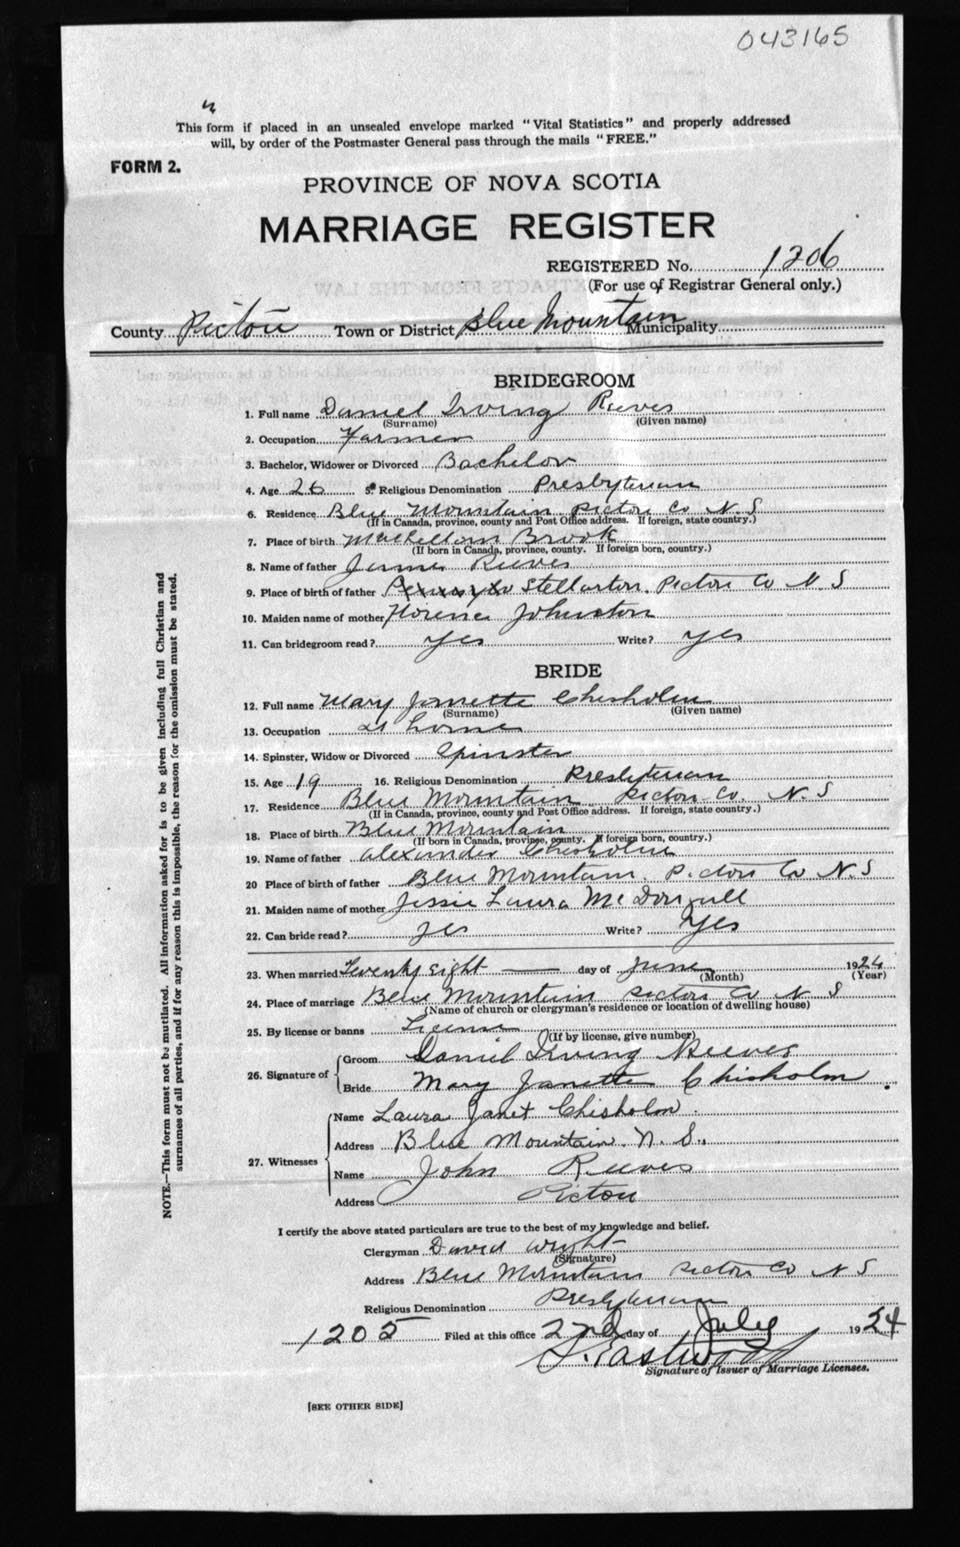 043165
This form if placed in an unsealed envelope marked "Vital Statistics" and properly addressed
will, by order of the Postmaster General pass through the mails "FREE."
FORM 2.
PROVINCE OF NOVA SCOTIA
MARRIAGE REGISTER
REGISTERED No. 1206
(For use of Registrar General only.)
County Pictou Town or District Blue Mountain Municipality
BRIDEGROOM
1. Full name Daniel Irving Reeves
(Surname) (Given name)
2. Occupation Farmer
3. Bachelor, Widower or Divorced Bachelor
4. Age 26 5. Religious Denomination Presbyterian
6. Residence Blue Mountain Pictou Co N. S
(If in Canada, province, county and Post Office address. If foreign, state country.)
7. Place of birth Brook
(If born in Canada, province, county. If foreign born, country.)
8. Name of father James Reeves
9. Place of birth of father Stellarton, Pictou Co N S
10. Maiden name of mother Florence Johnston
11. Can bridegroom read? yes Write? yes
BRIDE
12. Full name Mary Janette Chisholm
(Surname) (Given name)
13. Occupation at home
14. Spinster, Widow or Divorced Spinster
15. Age 19 16. Religious Denomination Presbyterian
17. Residence Blue Mountain Pictou Co. N. S
(If in Canada, province, county and Post Office address. If foreign, state country.)
18. Place of birth Blue Mountain
(If born in Canada, province, county. If foreign born, country.)
19. Name of father Alexander Chisholm
20 Place of birth of father Blue Mountain, Pictou Co N. S
21. Maiden name of mother Jessie Laura McDonnell
22. Can bride read? yes Write? Yes
23. When married Twenty Eight day of June 1924
(Month) (Year)
24. Place of marriage Blue Mountain Pictou Co N. S
(Name of church or clergyman's residence or location of dwelling house)
25. By license or banns License
(If by license, give number)
26. Signature of
Groom Daniel Irving Reeves
Bride Mary Janette Chisholm.
27. Witnesses
Name Laura Janet Chisholm.
Address Blue Mountain N. S.
Name John Reeves
Address Pictou
I certify the above stated particulars are true to the best of my knowledge and belief.
Clergyman David Wright
(Signature)
Address Blue Mountain Pictou Co N S
Religious Denomination Presbyterian
1205 Filed at this office 22nd day of July 1924
Eastwood
Signature of Issuer of Marriage Licenses.
[SEE OTHER SIDE]
NOTE.—This form must not be mutilated. All information asked for is to be given including full Christian and
surnames of all parties, and if for any reason this is impossible, the reason for the omission must be stated.